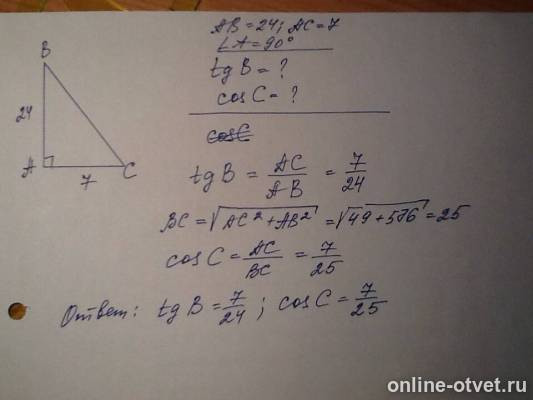 AB = 24; AC = 7
∠A = 90°
tg B = ?
cos C = ?
cosC
B
24
A
7
C
tg B = AC/AB = 7/24
BC = √(AC² + AB²) = √(49 + 576) = 25
cos C = AC/BC = 7/25
Ответ: tg B = 7/24; cos C = 7/25
online-otvet.ru